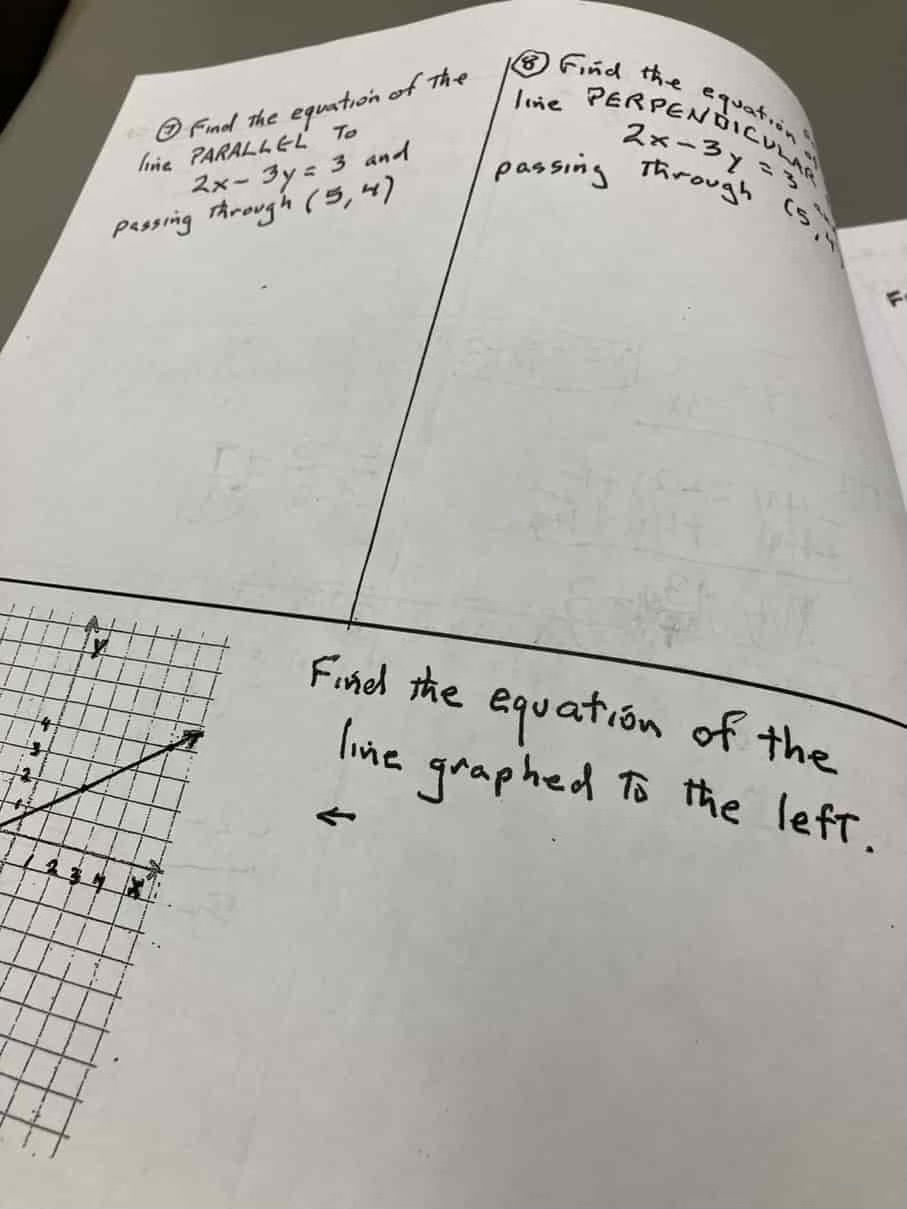 ⑦ Find the equation of the
line PARALLEL To
2x - 3y = 3 and
passing through (5, 4)
⑧ Find the equation
line PERPENDICULAR
2x - 3y = 3
passing through (5, 4
Y
4
3
2
1
1 2 3 4 X
Find the equation of the
line graphed To the left.
←